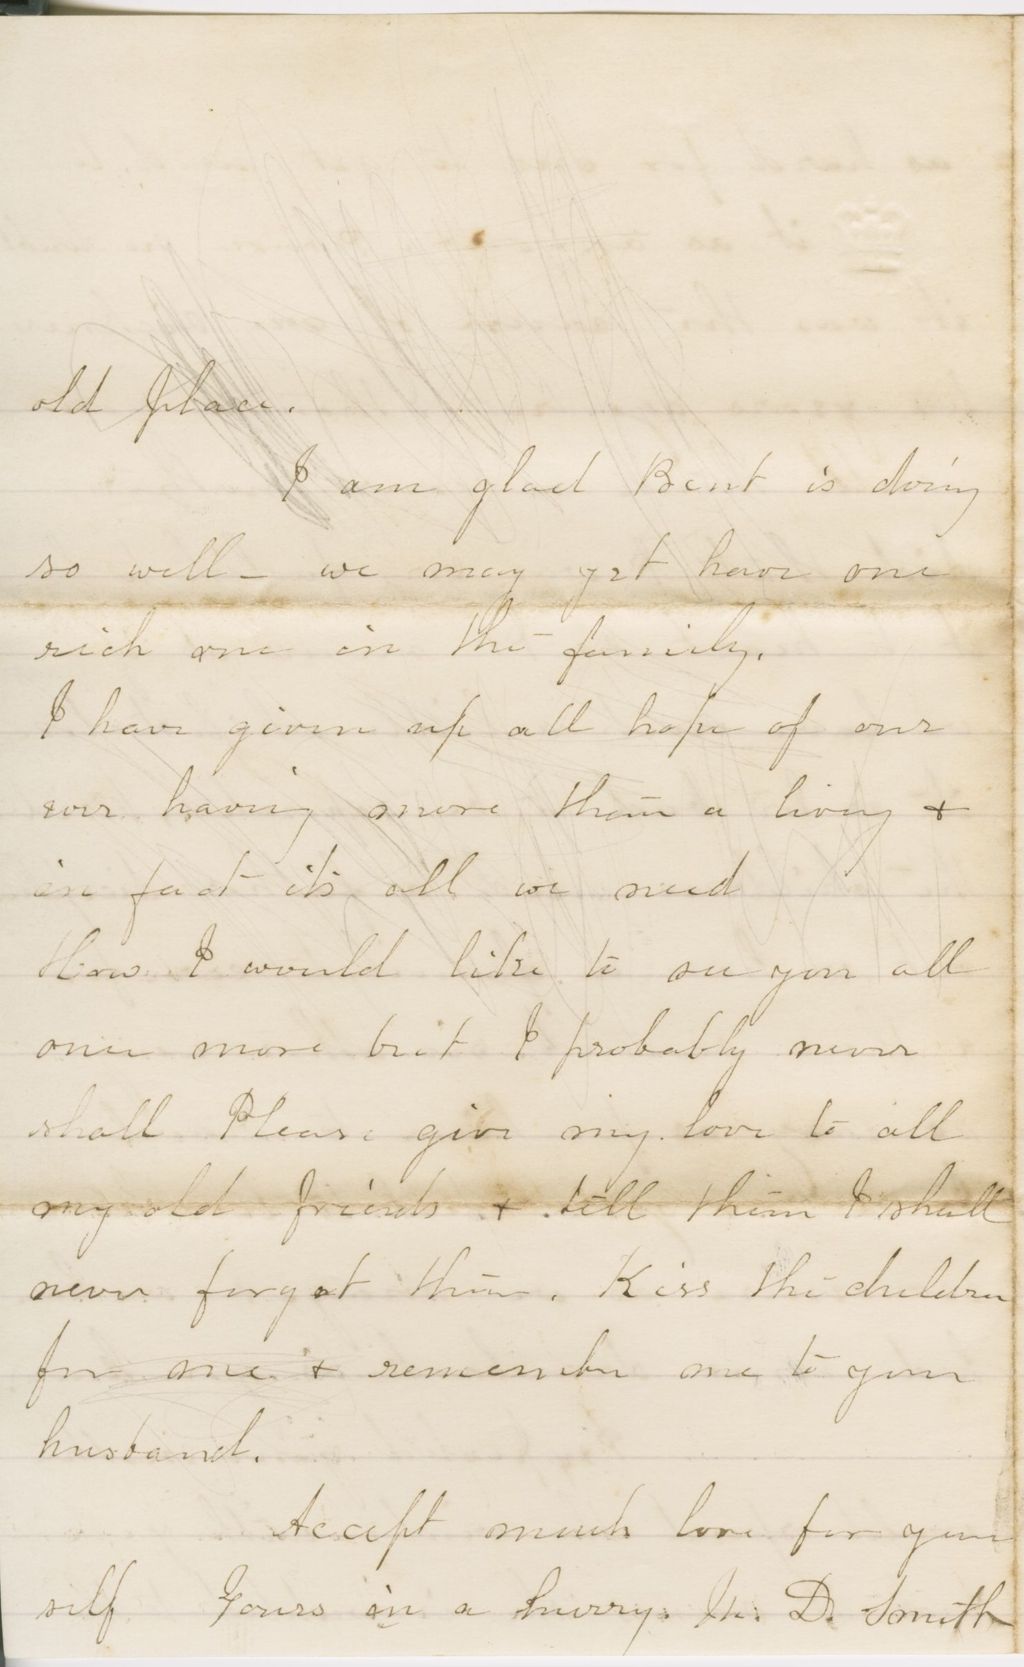 old place.
I am glad Bent is doing
so well - we may yet have one
rich one in the family.
I have given up all hope of our
ever having more than a living &
in fact its all we need
How I would like to see you all
once more but I probably never
shall Please give my love to all
my old friends & tell them I shall
never forget them. Kiss the children
for me & remember me to your
husband.
Accept much love for your
self Yours in a hurry. M. D. Smith